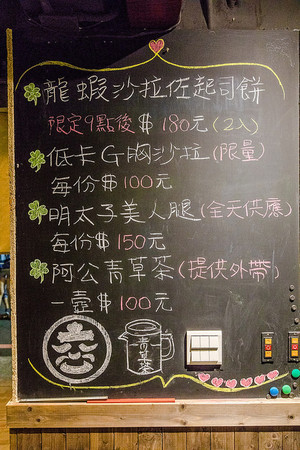 龍蝦沙拉佐起司餅
限定9點後$180元(2入)
低卡G胸沙拉(限量)
每份$100元
明太子美人腿(全天供應)
每份$150元
阿公青草茶(提供外帶)
一壺$100元
青草茶